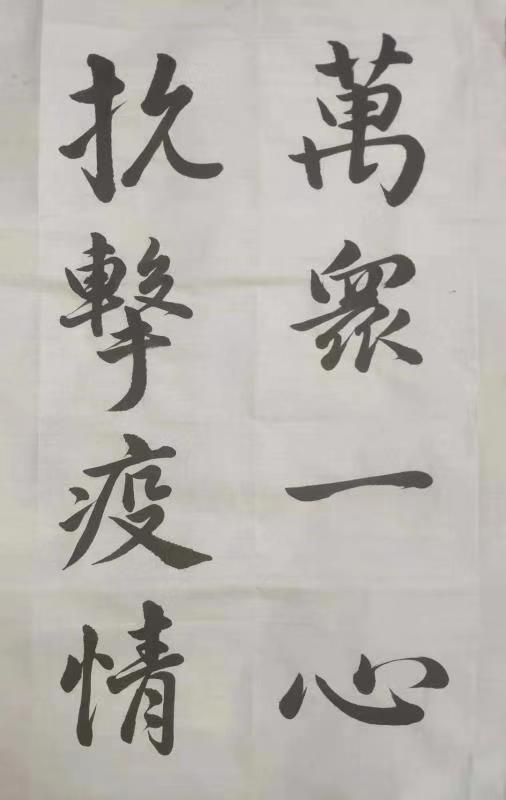 萬眾一心
抗擊疫情